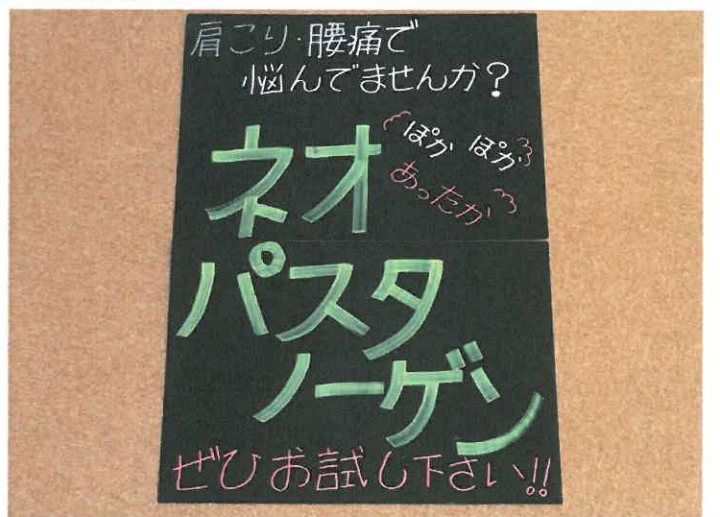 肩こり・腰痛で
悩んでませんか?
ぽか ぽか
あったか
ネオ
パスタ
ノーゲン
ぜひお試し下さい!!